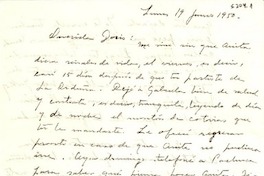 Lunes 19 Junio 1950.
Querida Doris: me vine sin que Anita
diera señales de vida, el viernes, es decir,
casi 15 días después de que tu partiste de
La Dejé a Gabriela bien de salud
y contenta, es decir, tranquila, leyendo de día
y de noche el montón de cosas que
tú le mandaste. Le ofrecí regresar
pronto en caso de que Anita no pudiera
ir. Ayer domingo telefoneé a
para saber qué